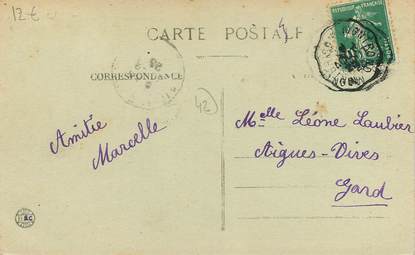 12 €
CARTE POSTALE
REPUBLIQUE FRANCAISE
CORRESPONDANCE
42
Amitié
Marcelle
Melle Léone Laubier
Aigues-Vives
Gard